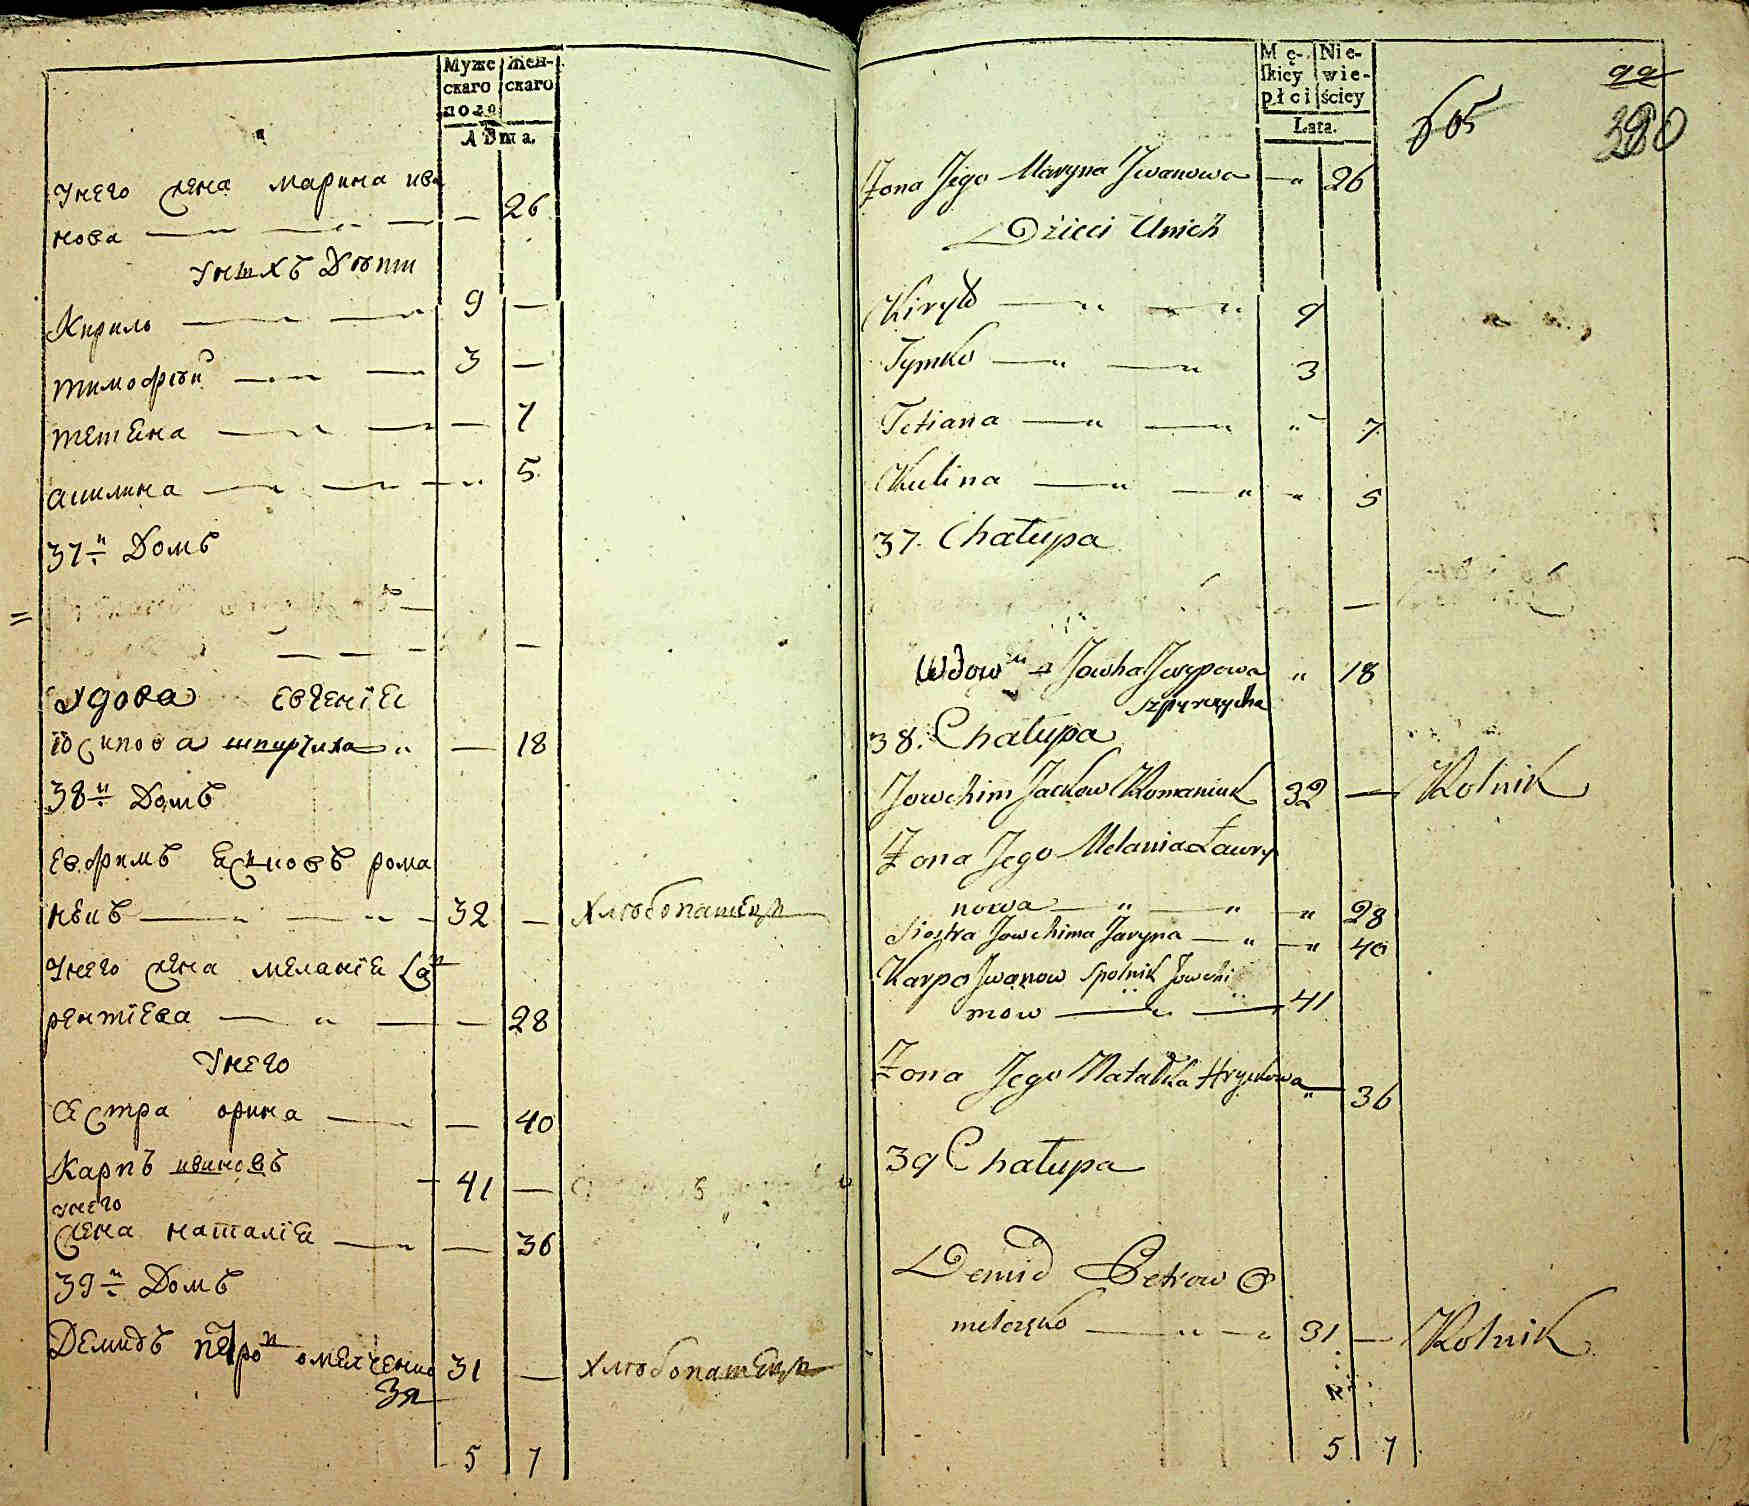 Муже
скаго
пола
Жен-
скаго
Лѣта.
Унего жена марина ива
нова — — — — 26
Унихъ Дѣти
Кирило — — 9 —
тимофѣй — — 3 —
тетяна — — — 7
акилина — — — 5
37й Домъ
Удова евгенія
юсипова шпирчиха — 18
38й Домъ
евфимъ яковъ рома
нюкъ — — — 32 — хлѣбопашецъ
Унего жена меланія Ла
рентіева — — — 28
Унего
сестра орина — — 40
Карпъ ивановъ — 41 —
унего
жена наталія — — 36
39й Домъ
Демидъ петро омелченко 31 — хлѣбопашецъ
5 7
Mę-
skiey
płci
Nie-
wie-
ściey
Lata.
605
99
380
Żona Jego Maryna Jwanowa — 26
Dzieci Unich
Kiryło — — 9
Tymko — — 3
Tetiana — — 7
Kulina — — 5
37. Chałupa
Wdowa Jowha Jozypowa 18
szpyrczycha
38. Chałupa
Jowchim Jackow Romaniuk 32 — Rolnik
Żona Jego Melania Ławry
nowa — — 28
Siostra Jowchima Jaryna — 40
Karpo Jwanow Spolnik Jowchi
mow — — 41
Żona Jego Natałka Hryckowa — 36
39 Chałupa
Demid Petrow O
melczęko — — 31 — Rolnik
5 7